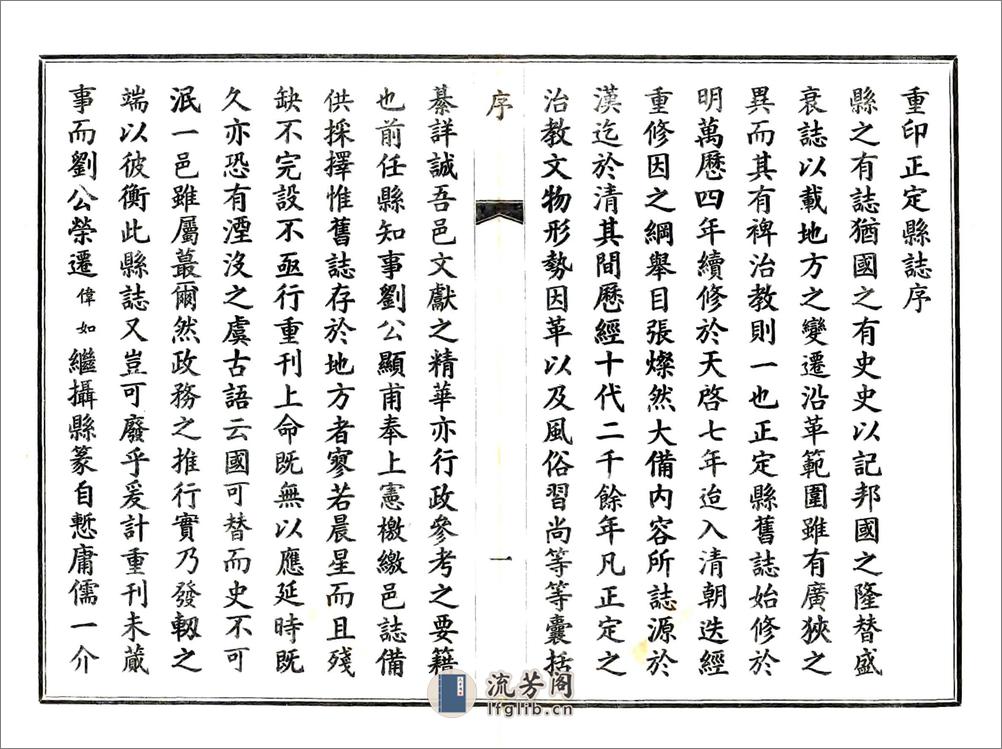 重印正定縣誌序
縣之有誌猶國之有史史以記邦國之隆替盛
衰誌以載地方之變遷沿革範圍雖有廣狹之
異而其有裨治教則一也正定縣舊誌始修於
明萬歷四年續修於天啓七年迨入清朝迭經
重修因之綱舉目張燦然大備內容所誌源於
漢迄於清其間歷經十代二千餘年凡正定之
治教文物形勢因革以及風俗習尚等等囊括
序
一
綦詳誠吾邑文獻之精華亦行政參考之要籍
也前任縣知事劉公顯甫奉上憲檄繳邑誌備
供採擇惟舊誌存於地方者寥若晨星而且殘
缺不完設不亟行重刊上命既無以應延時既
久亦恐有湮沒之虞古語云國可替而史不可
泯一邑雖屬蕞爾然政務之推行實乃發軔之
端以彼衡此縣誌又豈可廢乎爰計重刊未蕆
事而劉公榮遷偉如繼攝縣篆自慙庸儒一介
流芳阁
lfglib.cn